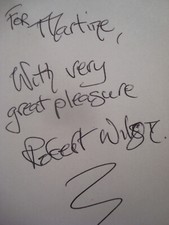 For Martine,
With very
great pleasure
Robert Wilson.